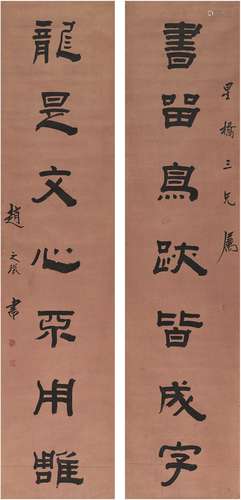 星橋三兄屬
書留鳥跡皆成字
龍是文心不用雕
趙之琛書